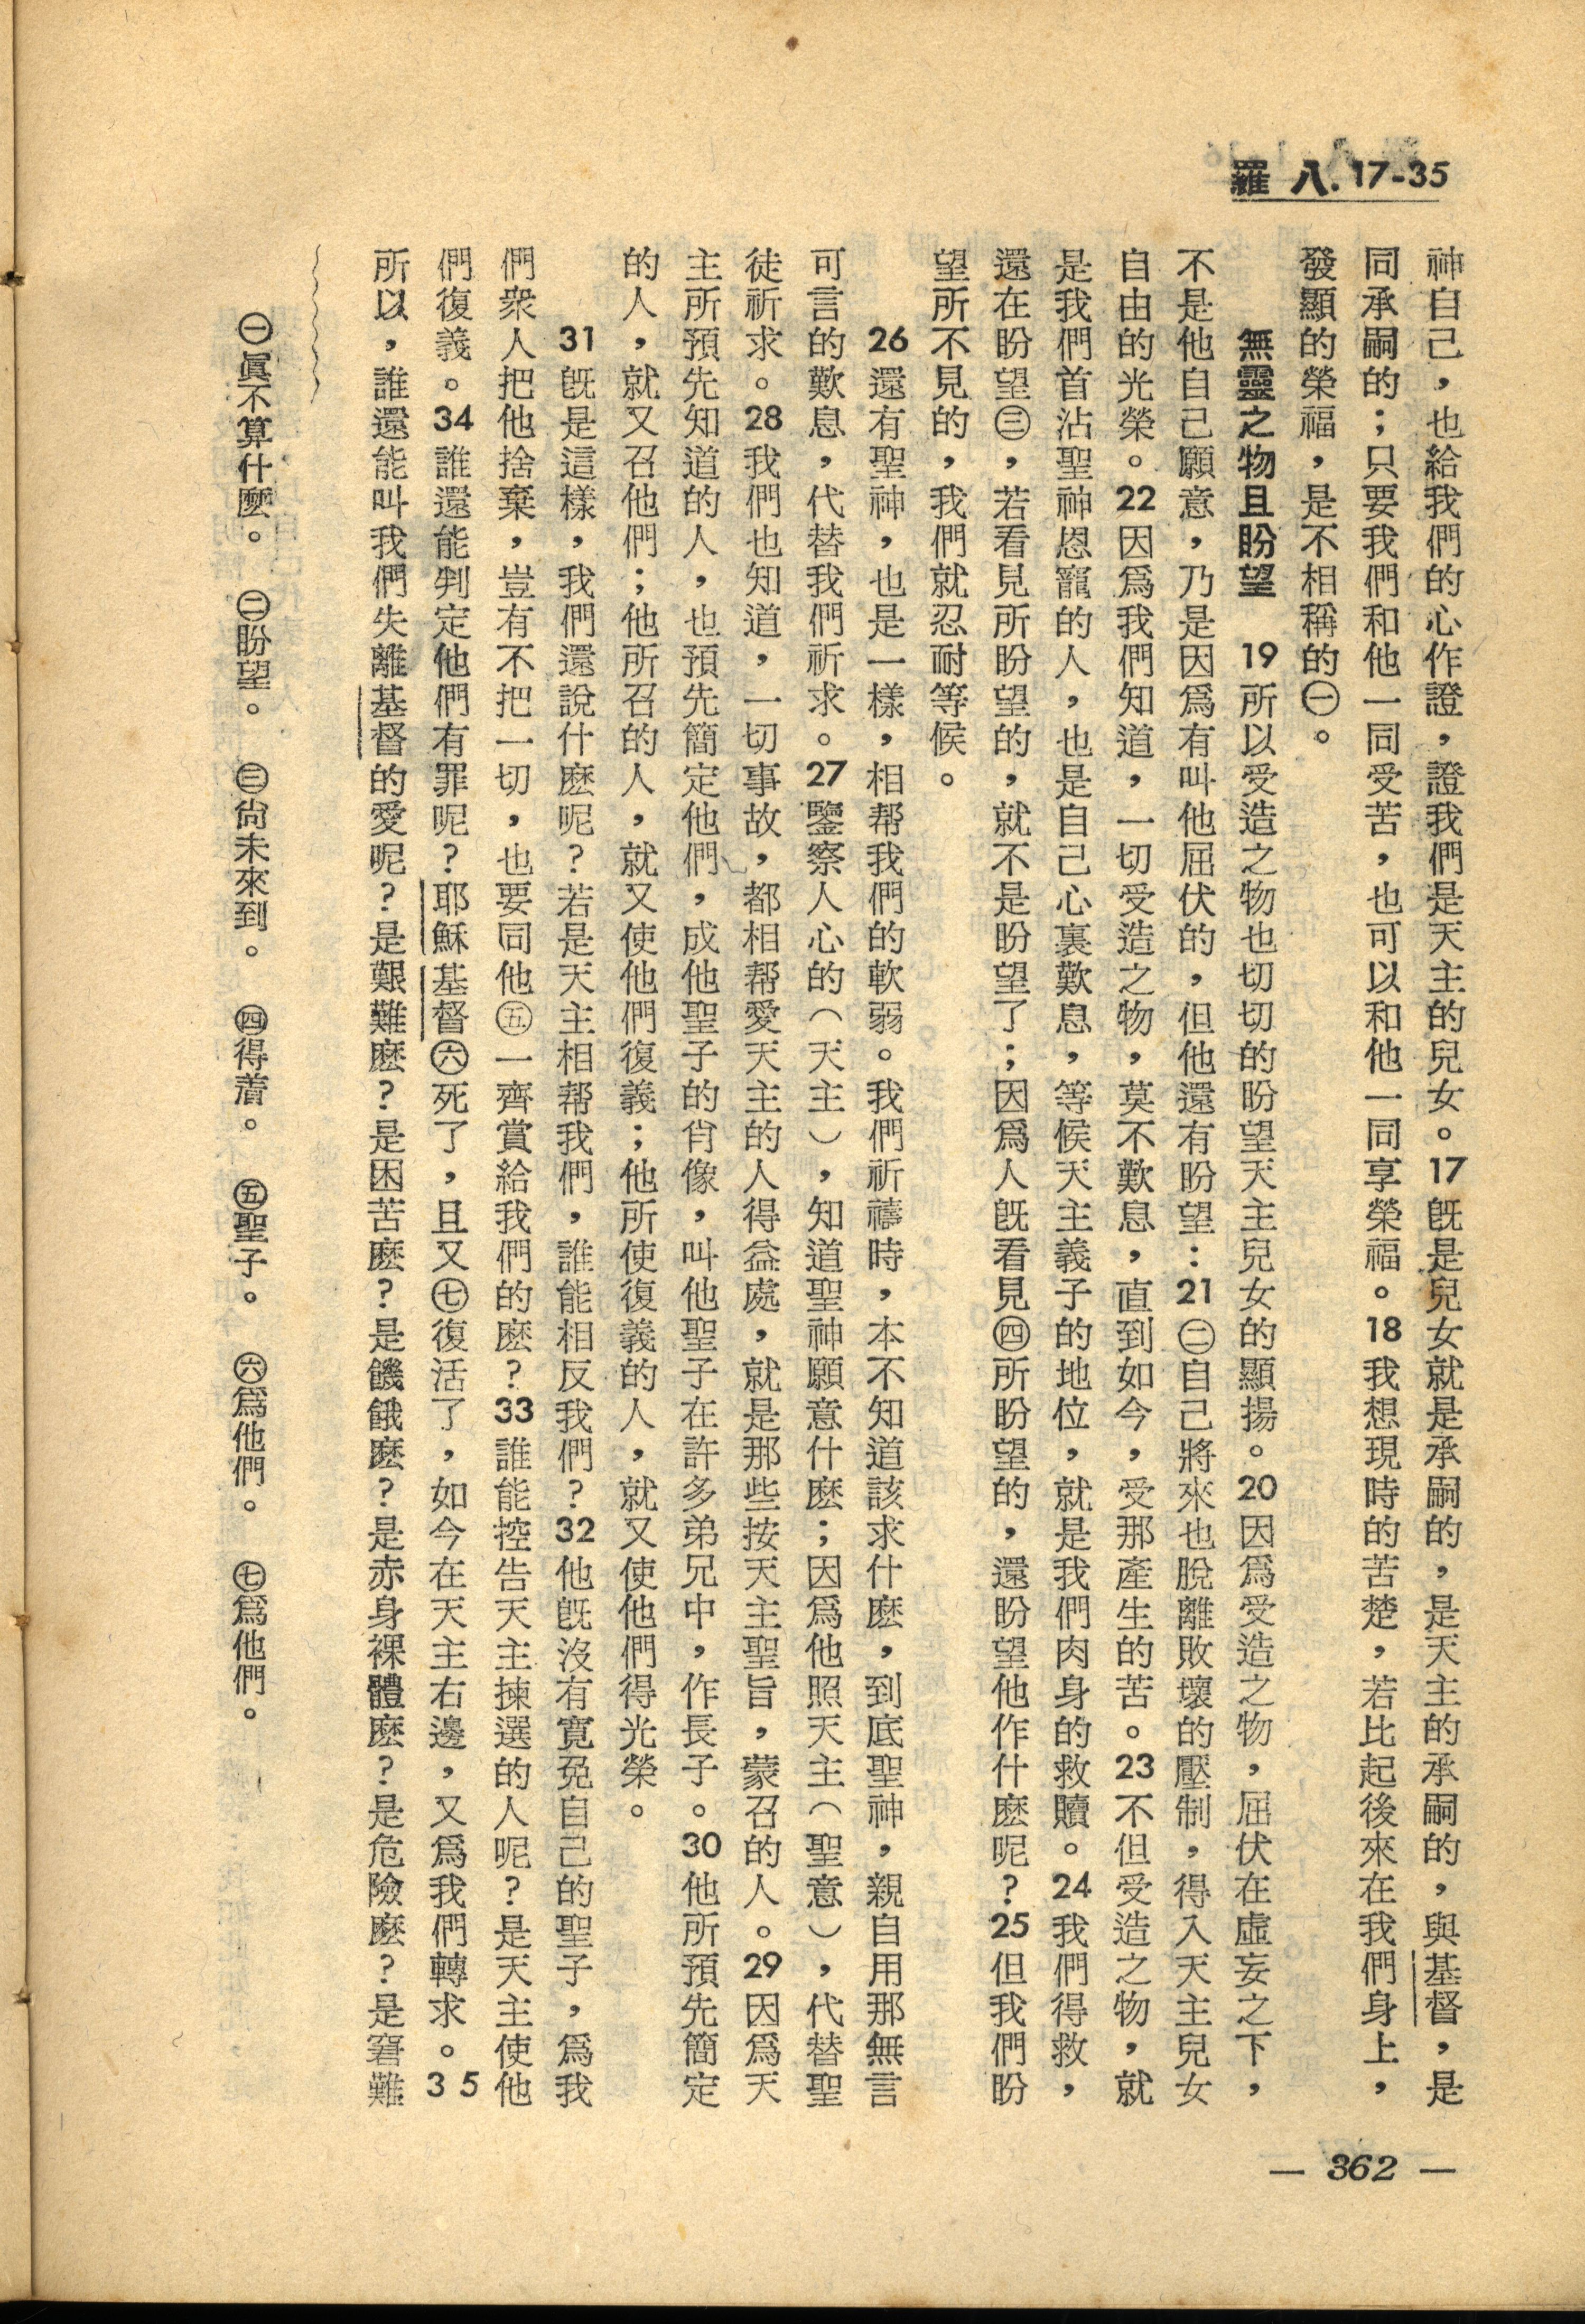 羅 八. 17-35
神自己，也給我們的心作證，證我們是天主的兒女。17既是兒女就是承嗣的，是天主的承嗣的，與基督，是
同承嗣的；只要我們和他一同受苦，也可以和他一同享榮福。18我想現時的苦楚，若比起後來在我們身上，
發顯的榮福，是不相稱的㊀。
無靈之物且盼望　19所以受造之物也切切的盼望天主兒女的顯揚。20因爲受造之物，屈伏在虛妄之下，
不是他自己願意，乃是因爲有叫他屈伏的，但他還有盼望：21㊁自己將來也脫離敗壞的壓制，得入天主兒女
自由的光榮。22因爲我們知道，一切受造之物，莫不歎息，直到如今，受那產生的苦。23不但受造之物，就
是我們首沾聖神恩寵的人，也是自己心裏歎息，等候天主義子的地位，就是我們肉身的救贖。24我們得救，
還在盼望㊂，若看見所盼望的，就不是盼望了；因爲人既看見㊃所盼望的，還盼望他作什麽呢？25但我們盼
望所不見的，我們就忍耐等候。
26還有聖神，也是一樣，相帮我們的軟弱。我們祈禱時，本不知道該求什麽，到底聖神，親自用那無言
可言的歎息，代替我們祈求。27鑒察人心的（天主），知道聖神願意什麽；因爲他照天主（聖意），代替聖
徒祈求。28我們也知道，一切事故，都相帮愛天主的人得益處，就是那些按天主聖旨，蒙召的人。29因爲天
主所預先知道的人，也預先簡定他們，成他聖子的肖像，叫他聖子在許多弟兄中，作長子。30他所預先簡定
的人，就又召他們；他所召的人，就又使他們復義；他所使復義的人，就又使他們得光榮。
31既是這樣，我們還說什麽呢？若是天主相帮我們，誰能相反我們？32他既沒有寬免自己的聖子，爲我
們衆人把他捨棄，豈有不把一切，也要同他㊄一齊賞給我們的麽？33誰能控告天主揀選的人呢？是天主使他
們復義。34誰還能判定他們有罪呢？耶穌基督㊅死了，且又㊆復活了，如今在天主右邊，又爲我們轉求。35
所以，誰還能叫我們失離基督的愛呢？是艱難麽？是困苦麽？是饑餓麽？是赤身裸體麽？是危險麽？是窘難
㊀眞不算什麽。　㊁盼望。　㊂尙未來到。　㊃得着。　㊄聖子。　㊅爲他們。　㊆爲他們。
— 362 —